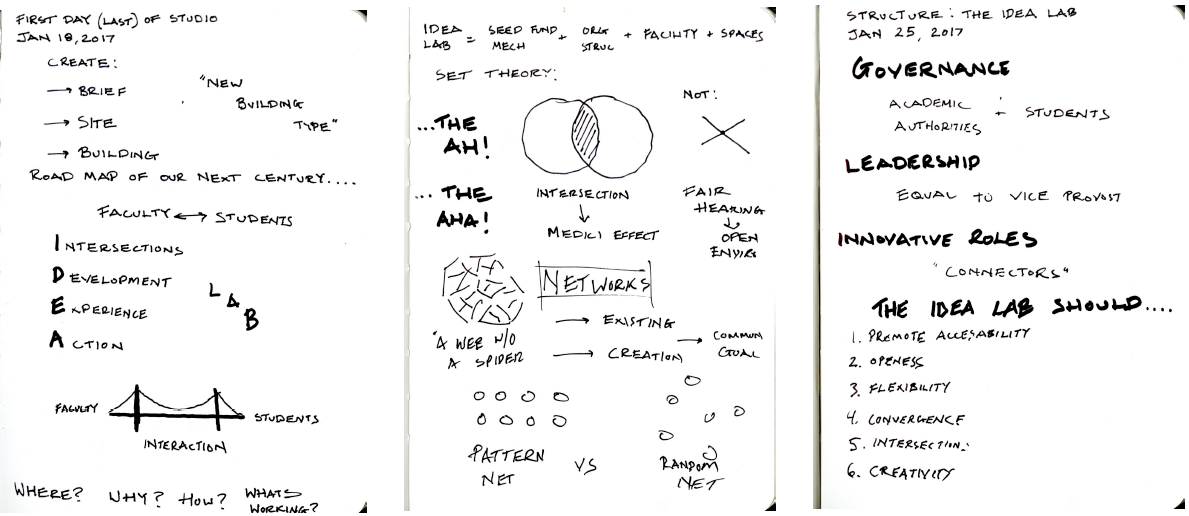 FIRST DAY (LAST) OF STUDIO
JAN 18, 2017
CREATE:
→ BRIEF
→ SITE
→ BUILDING
"NEW
BUILDING
TYPE"
ROAD MAP OF OUR NEXT CENTURY....
FACULTY ↔ STUDENTS
INTERSECTIONS
DEVELOPMENT
EXPERIENCE
ACTION
LAB
FACULTY
STUDENTS
INTERACTION
WHERE? WHY? HOW? WHATS
WORKING?
IDEA LAB = SEED FUND MECH + ORG STRUC + FACILITY + SPACES
SET THEORY:
NOT:
...THE
AH!
...THE
AHA!
INTERSECTION
↓
MEDICI EFFECT
FAIR
HEARING
↓
OPEN
ENVIRS
NETWORKS
→ EXISTING
→ CREATION → COMMON
GOAL
"A WEB W/O
A SPIDER
PATTERN
NET
VS
RANDOM
NET
STRUCTURE: THE IDEA LAB
JAN 25, 2017
GOVERNANCE
ACADEMIC
AUTHORITIES
+ STUDENTS
LEADERSHIP
EQUAL TO VICE PROVOST
INNOVATIVE ROLES
"CONNECTORS"
THE IDEA LAB SHOULD....
1. PROMOTE ACCESABILITY
2. OPENESS
3. FLEXIBILITY
4. CONVERGENCE
5. INTERSECTION:
6. CREATIVITY